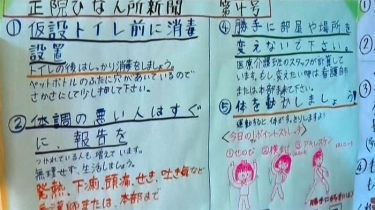 正院ひなん所新聞 第4号
① 仮設トイレ前に消毒
設置
トイレの後はしっかり消毒をしましょう。
ペットボトルのふたに穴があいているので
さかさにして少し押して下さい。
② 体調の悪い人はすぐ
に、報告を
つかれている人も、増えています。
無理せず、生活しましょう。
発熱、下痢、頭痛、せき、吐き気など
または、本部まで
④ 勝手に部屋や場所を
変えないで下さい。
医療介護班のスタッフが計算して
います。もし、変えたい時は看護師
または本部まで下さい。
⑤ 体を動かしましょう
運動すると体がすっきりしますよ!
<今日のポイントストレッチ>
①せのび ②横まげ ③アキレスケン